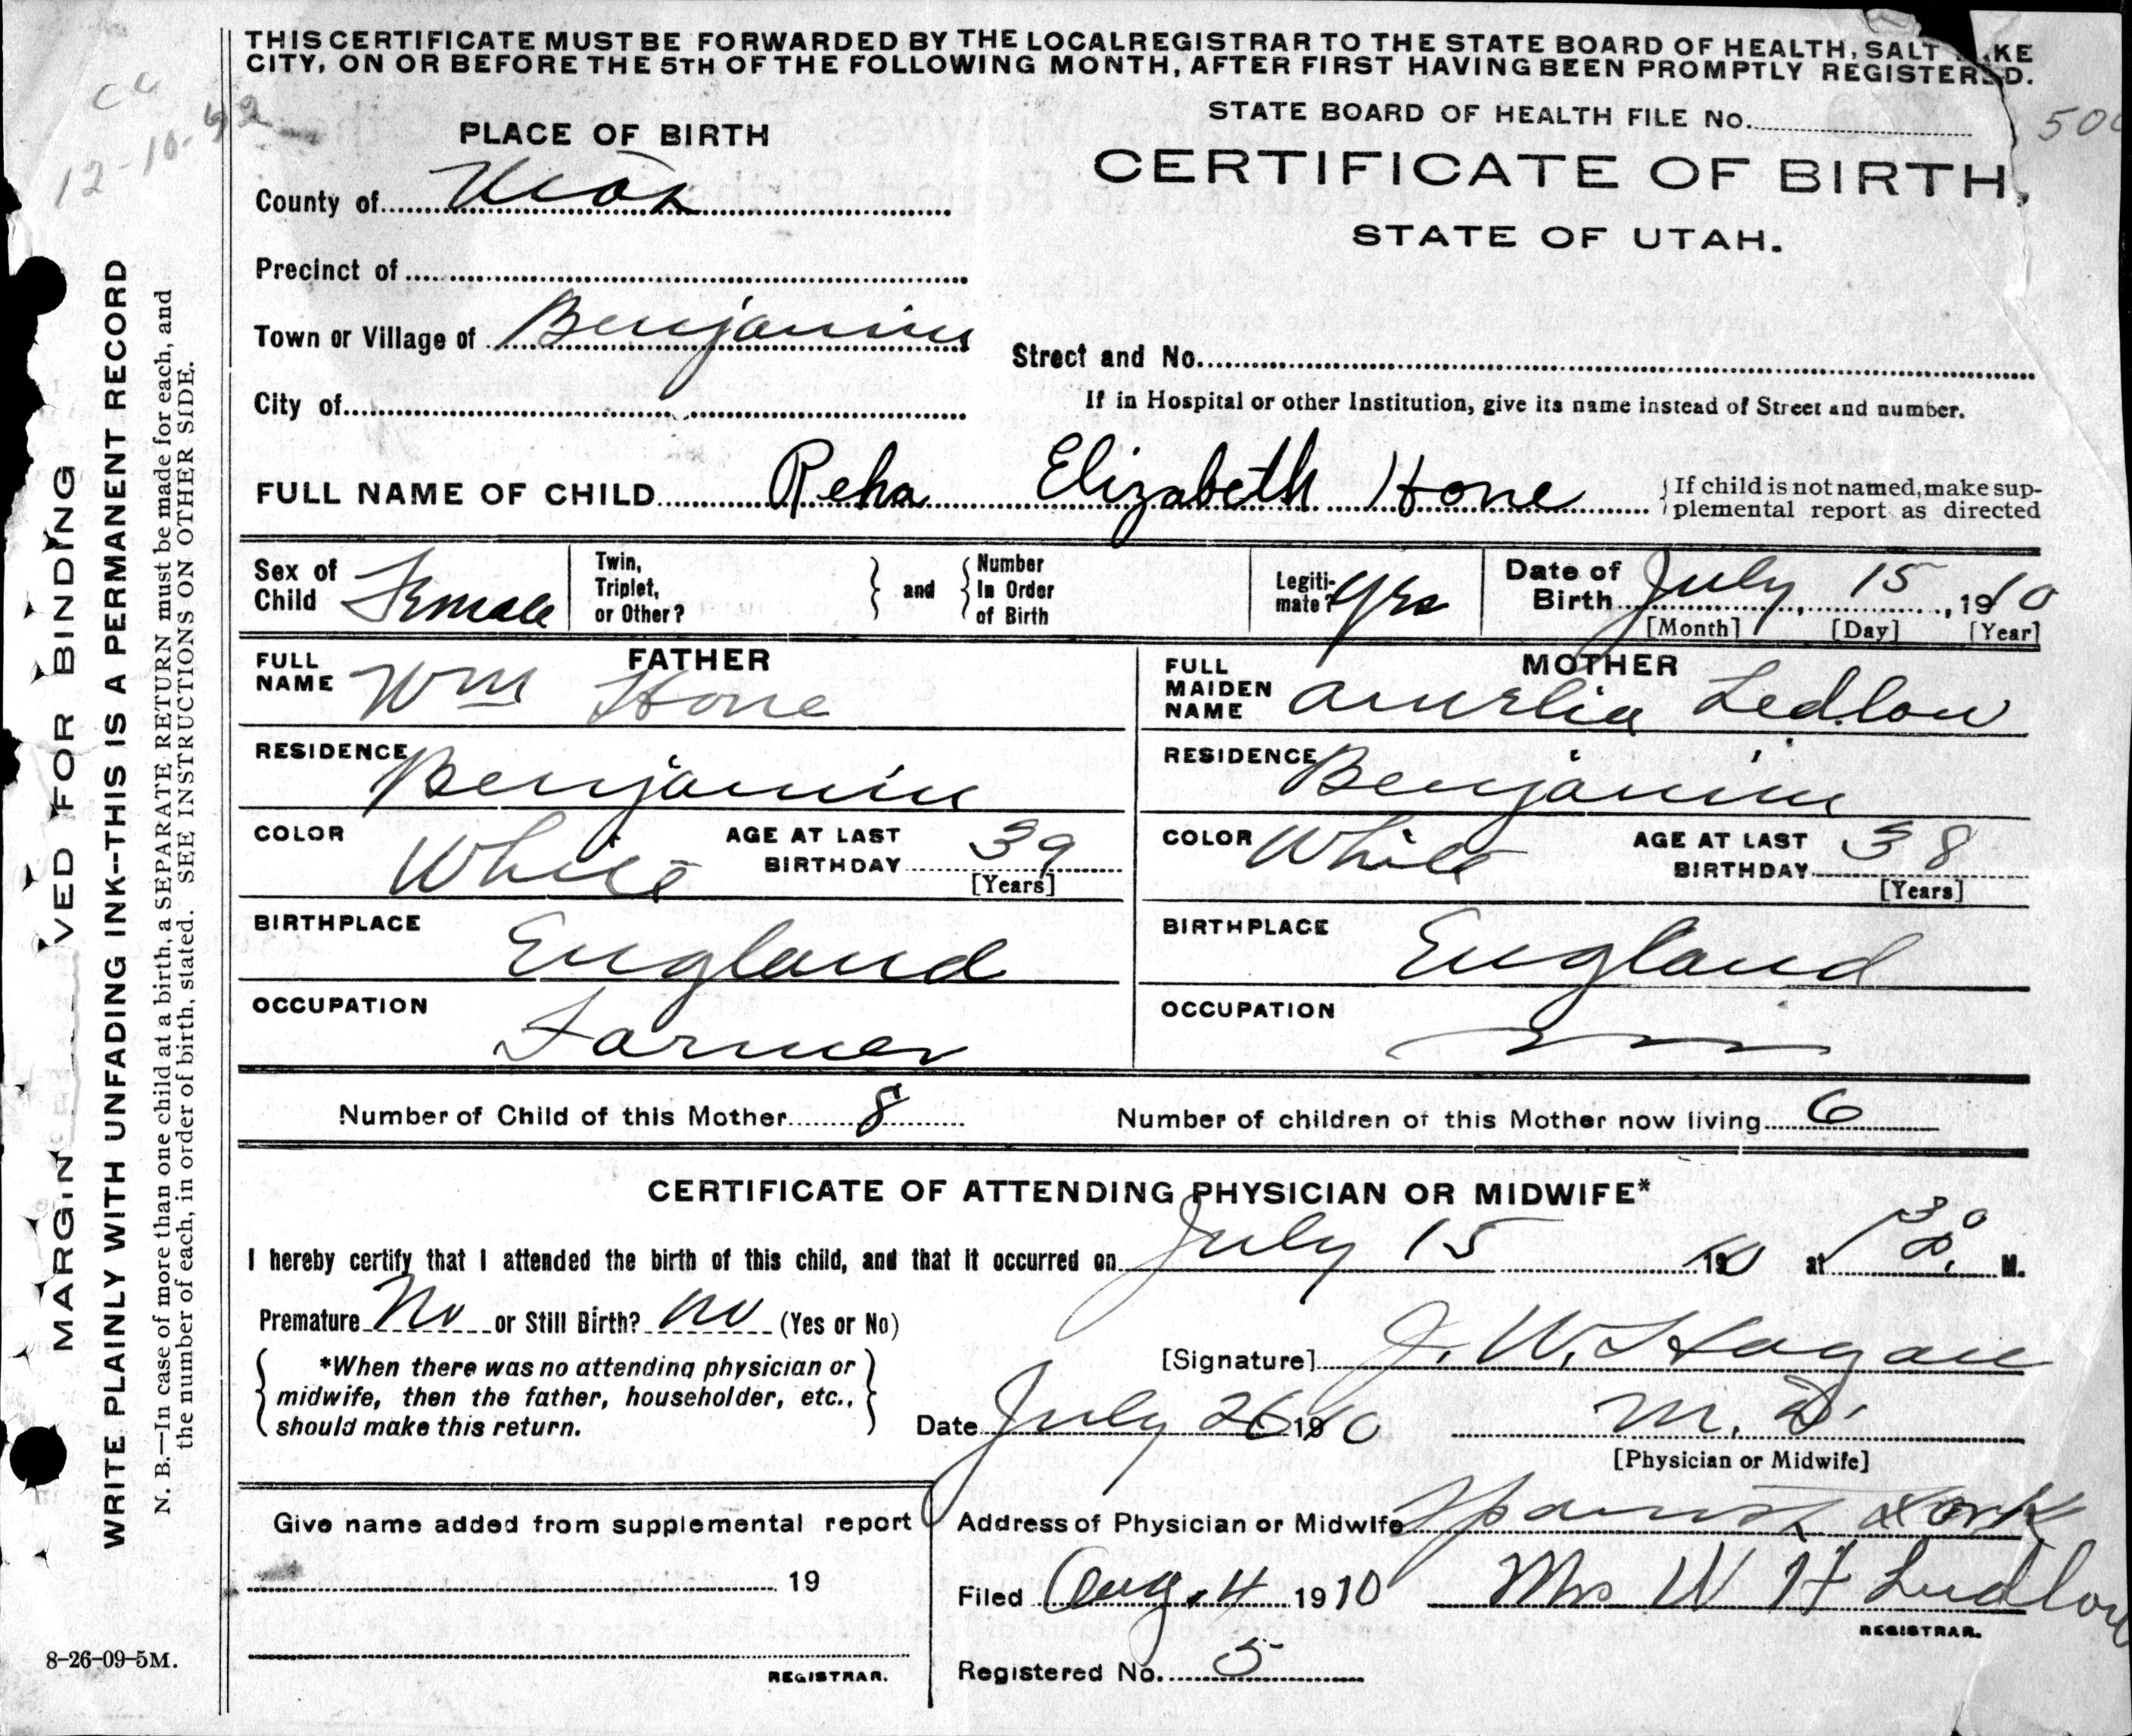 THIS CERTIFICATE MUST BE FORWARDED BY THE LOCAL REGISTRAR TO THE STATE BOARD OF HEALTH, SALT KE
CITY, ON OR BEFORE THE 5TH OF THE FOLLOWING MONTH, AFTER FIRST HAVING BEEN PROMPTLY REGISTERED.
12-10-62
STATE BOARD OF HEALTH FILE No. 500
PLACE OF BIRTH
CERTIFICATE OF BIRTH,
STATE OF UTAH.
County of Utah
Precinct of
Town or Village of Benjamin
Street and No.
City of
If in Hospital or other Institution, give its name instead of Street and number.
FULL NAME OF CHILD Reha Elizabeth Hone
If child is not named, make sup-
plemental report as directed
Sex of
Child Female
Twin,
Triplet,
or Other?
and
Number
In Order
of Birth
Legiti-
mate? Yes
Date of
Birth July 15, 1910
[Month] [Day] [Year]
FATHER
FULL
NAME Wm Hone
RESIDENCE Benjamin
COLOR White
AGE AT LAST
BIRTHDAY 39
[Years]
BIRTHPLACE England
OCCUPATION Farmer
MOTHER
FULL
MAIDEN
NAME Amelia Ledlow
RESIDENCE Benjamin
COLOR White
AGE AT LAST
BIRTHDAY 38
[Years]
BIRTHPLACE England
OCCUPATION
Number of Child of this Mother 8
Number of children of this Mother now living 6
CERTIFICATE OF ATTENDING PHYSICIAN OR MIDWIFE*
I hereby certify that I attended the birth of this child, and that it occurred on July 15 1910 at M.
Premature No or Still Birth? no (Yes or No)
*When there was no attending physician or
midwife, then the father, householder, etc.,
should make this return.
[Signature] J. W. Hagan
Date July 26 1910
M. D.
[Physician or Midwife]
Give name added from supplemental report
19
REGISTRAR.
Address of Physician or Midwife Spanish Fork
Filed Aug. 4 1910 Mrs W H Ludlow
REGISTRAR.
Registered No. 5
8-26-09-5M.
MARGIN VED FOR BINDING
WRITE PLAINLY WITH UNFADING INK--THIS IS A PERMANENT RECORD
N. B.—In case of more than one child at a birth, a SEPARATE RETURN must be made for each, and
the number of each, in order of birth, stated. SEE INSTRUCTIONS ON OTHER SIDE.